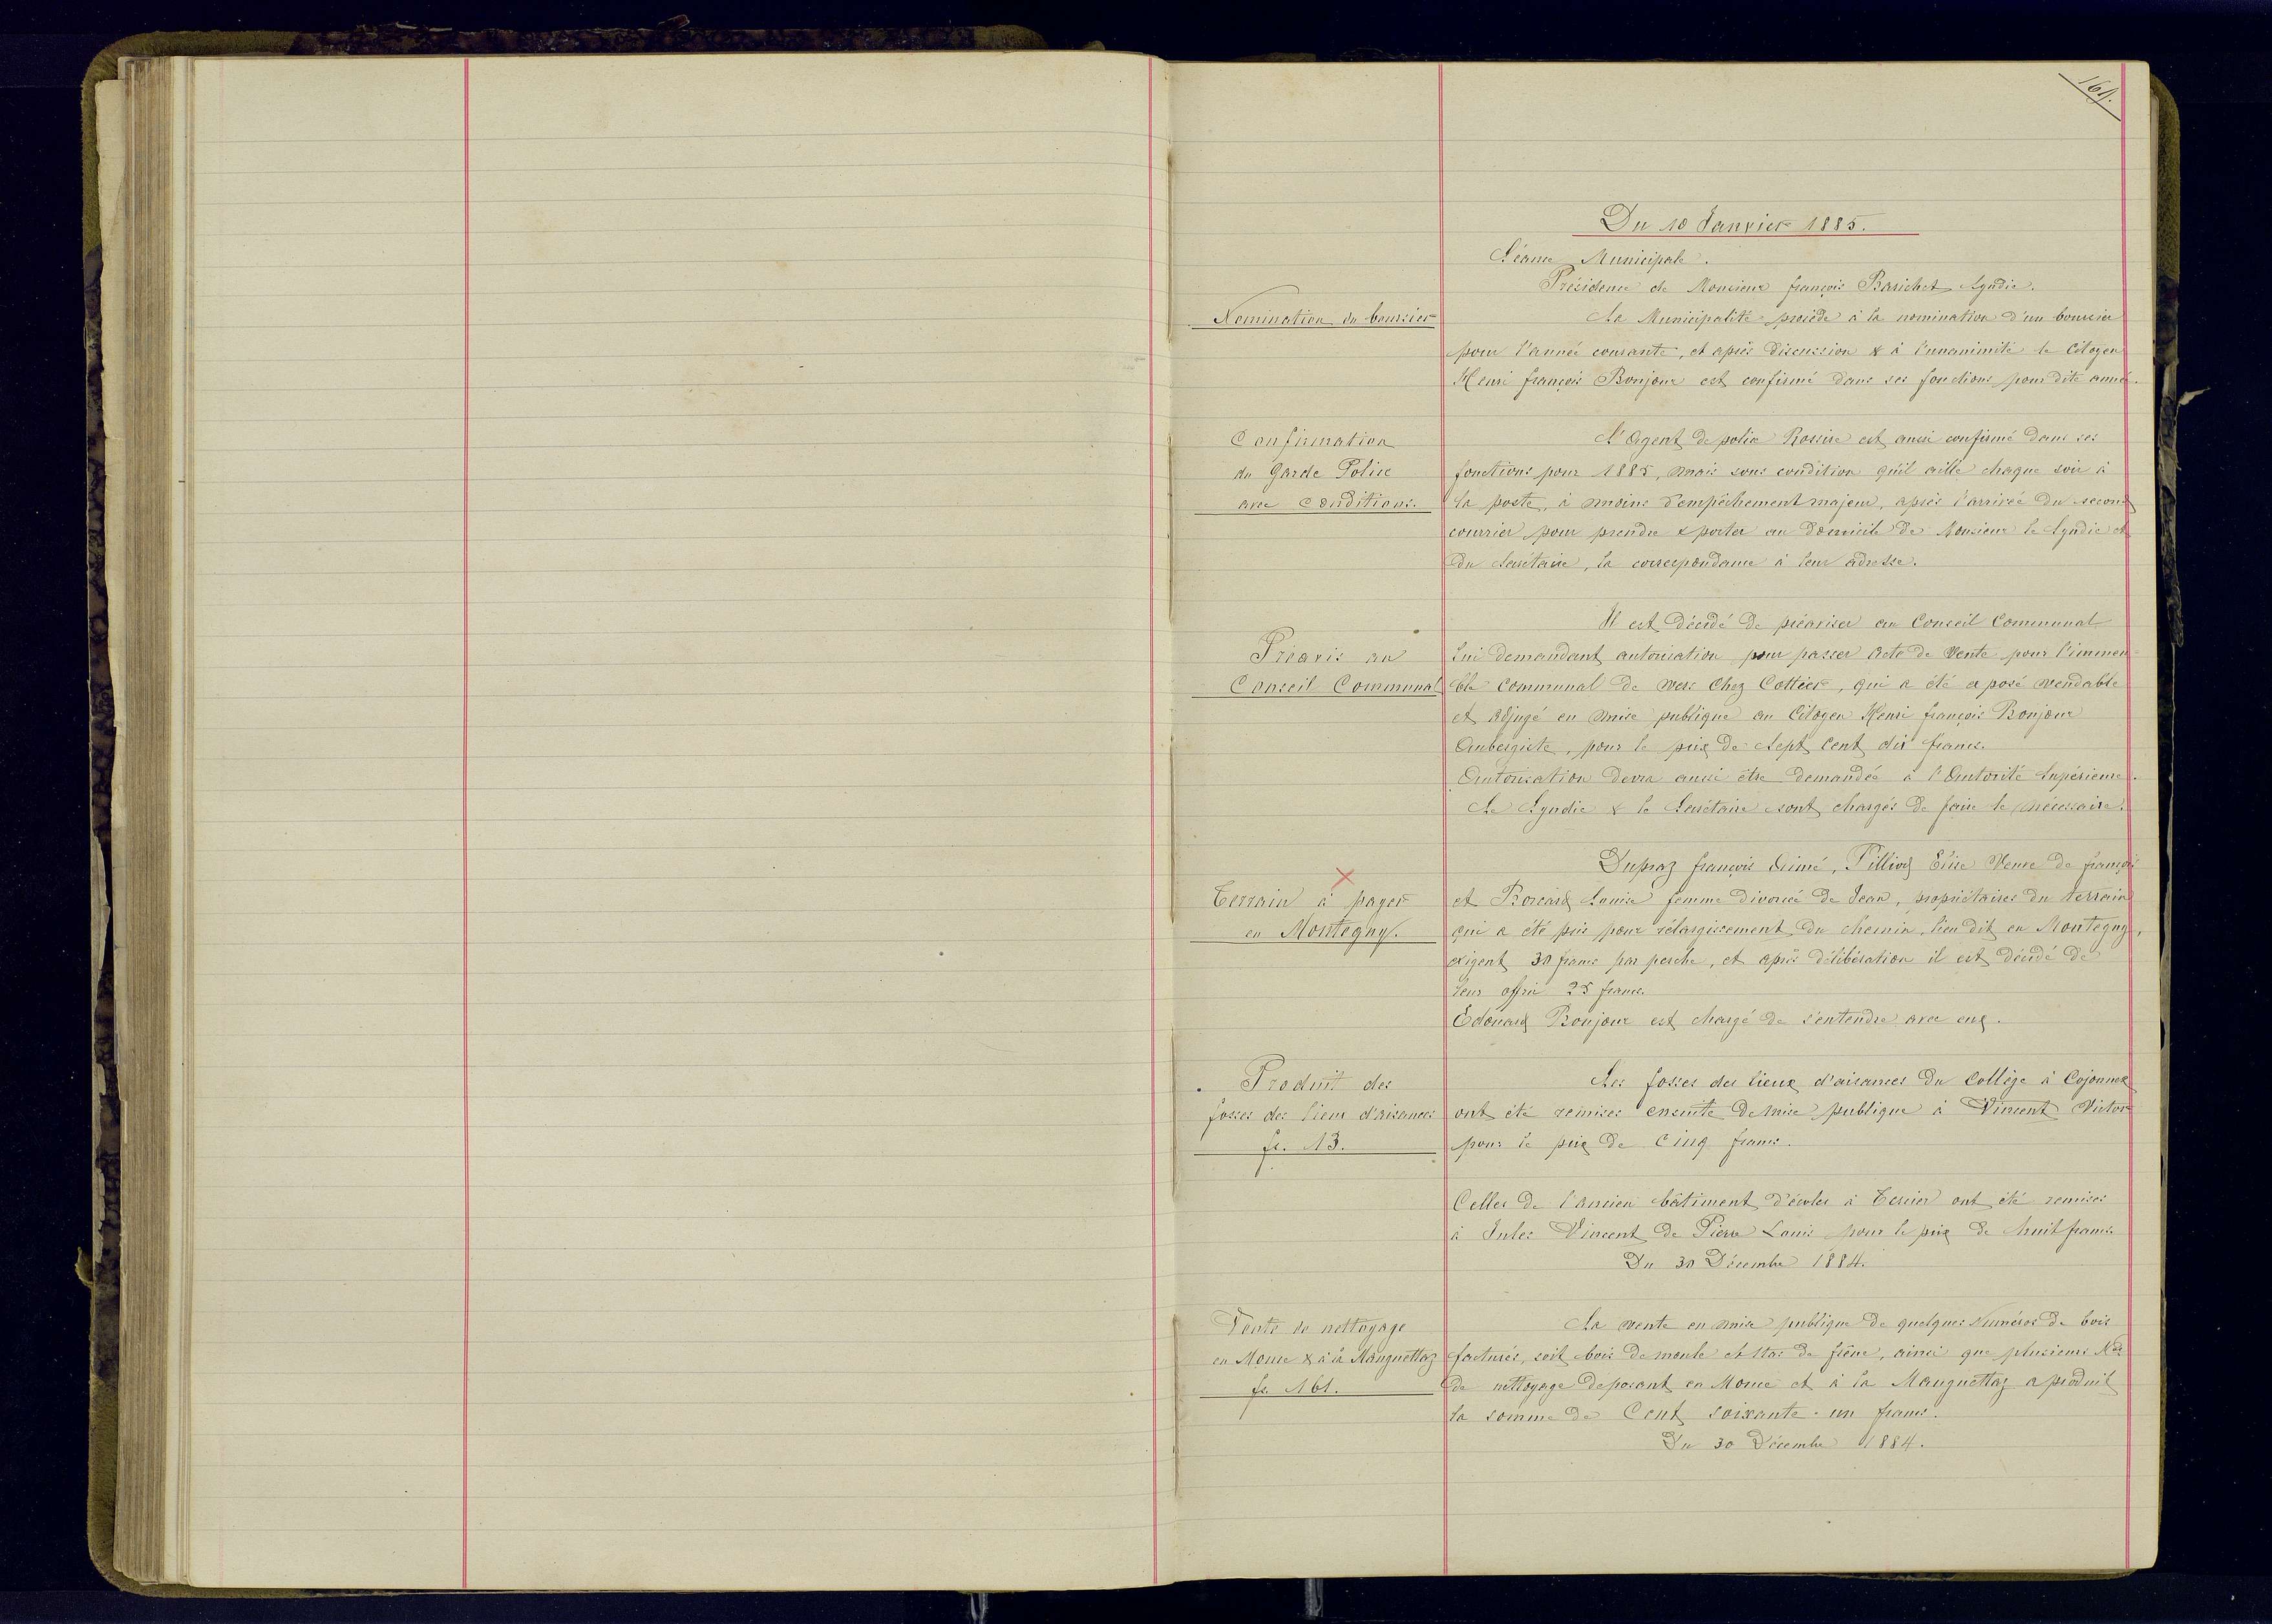 161.
Du 10 Janvier 1885.
Séance Municipale.
Présidence de Monsieur françois Barichet Syndic.
Nomination du boursier
La Municipalité procède à la nomination d'un boursier
pour l'année courante, et après discussion & à l'unanimité le Citoyen
Henri françois Bonjour est confirmé dans ses fonctions pour dite année.
Confirmation
du Garde Police
avec conditions.
L'Agent de police Rossire est aussi confirmé dans ses
fonctions pour 1885, mais sous condition qu'il aille chaque soir à
la poste, à moins d'empêchement majeur, après l'arrivée du second
courrier pour prendre & porter au domicile de Monsieur le Syndic et
du Secrétaire, la correspondance à leur adresse.
Préavis au
Conseil Communal
Il est décidé de préaviser au Conseil Communal
lui demandant autorisation pour passer Acte de Vente pour l'immeu-
ble communal de vers Chez Cottier, qui a été exposé vendable
et adjugé en mise publique au Citoyen Henri françois Bonjour
Aubergiste, pour le prix de Sept Cent dix francs.
Autorisation devra aussi être demandée à l'Autorité Supérieure.
Le Syndic & le Secrétaire sont chargés de faire le nécessaire.
Terrain à payer
en Montegny.
Dupraz françois Aimé, Pilliod Elise Veuve de françois
et Borcard Louise femme divorcée de Jean, propriétaires du terrain
qui a été pris pour rélargissement du chemin, lieu dit en Montegny,
exigent 30 francs par perche, et après délibération il est décidé de
leur offrir 25 francs.
Edouard Bonjour est chargé de s'entendre avec eux.
Produit des
fosses des lieux d'aisances
fr. 13.
Les fosses des lieux d'aisances du Collège à Cojonnex
ont été remises ensuite de mise publique à Vincent Victor
pour le prix de Cinq francs.
Celles de l'ancien bâtiment d'écoles à Tercier ont été remises
à Jules Vincent de Pierre Louis pour le prix de huit francs.
Du 30 Décembre 1884.
Vente de nettoyage
en Mouce & à la Mauguettaz
fr. 161.
La vente en mise publique de quelques numéros de bois
facturés, soit bois de moule et tas de frêne, ainsi que plusieurs Nos
de nettoyage deposant en Mouce et à la Mauguettaz a produit
la somme de Cent soixante-un francs.
Du 30 Décembre 1884.